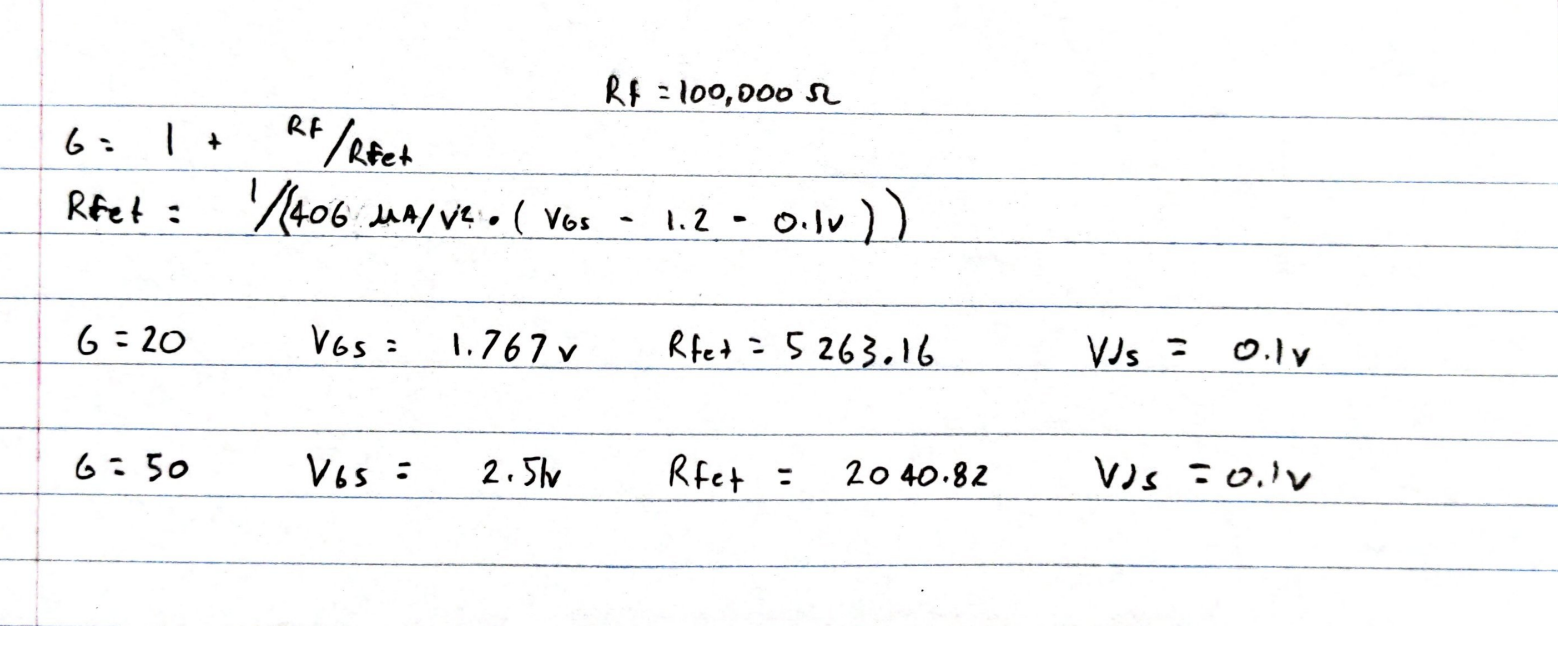 Rf = 100,000 Ω
G = 1 + RF/Rfet
Rfet = 1/(406 μA/V² • (VGS - 1.2 - 0.1v))
G = 20 VGS = 1.767 v Rfet = 5263.16 VJs = 0.1v
G = 50 VGS = 2.51v Rfet = 2040.82 VJs = 0.1v